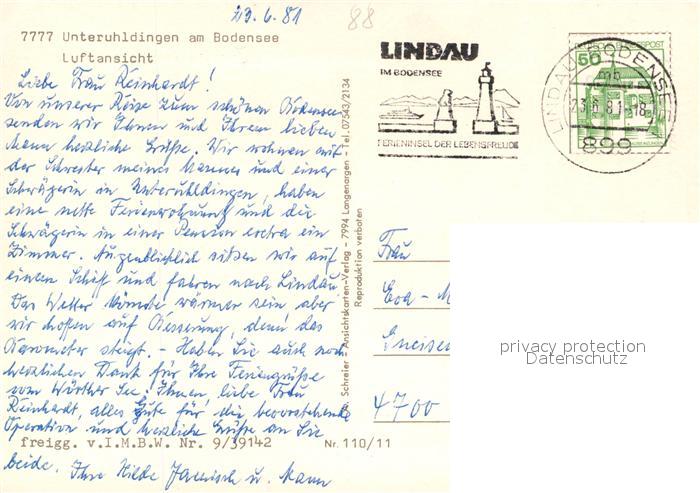 23.6.81
88
7777 Unteruhldingen am Bodensee
Luftansicht
Liebe Frau Reinhardt!
Von unserer Reise zum schönen Bodensee
senden wir Ihnen und Ihrem lieben
Mann herzliche Grüße. Wir wohnen mit
der Schwester meines Mannes und einer
Schwägerin in Unteruhldingen, haben
eine nette Ferienwohnung und die
Schwägerin in einer Pension extra ein
Zimmer. Augenblicklich sitzen wir auf
einem Schiff und fahren nach Lindau
Das Wetter könnte wärmer sein aber
wir hoffen auf Besserung, denn das
Barometer steigt. - Haben Sie auch noch
herzlichen Dank für Ihre Feriengrüße
vom Wörther See. Ihnen, liebe Frau
Reinhardt, alles Gute für die bevorstehende
Operation und herzliche Grüße an Sie
freigg. v.I.M.B.W. Nr. 9/39142
Nr. 110/11
beide. Ihre Hilde u. Mann
Schreier - Ansichtskarten-Verlag - 7994 Langenargen - Tel. 07543/2134
Reproduktion verboten
LINDAU
IM BODENSEE
FERIENINSEL DER LEBENSFREUDE
LINDAU, BODENSEE
mb
23.6.81-18
899
50
Frau
Eva - M
Gneisen
4700
privacy protection
Datenschutz